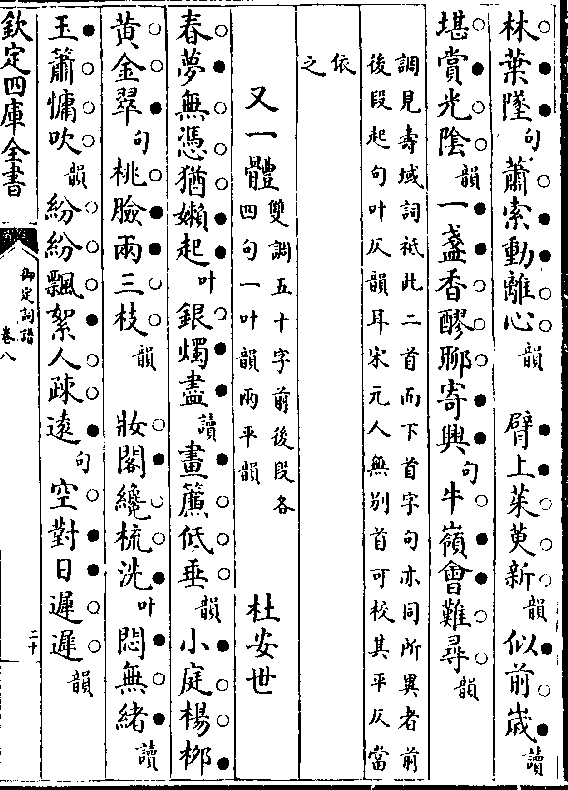 林葉墜句蕭索動離心韻臂上茱萸新韻似前歲讀
堪賞光陰韻一盞香醪聊寄興句牛嶺會難尋韻
調見壽域詞祗此二首而下首字句亦同所異者前
後段起句叶仄韻耳宋元人無別首可校其平仄當
依
之
又一體雙調五十字前後段各
四句一叶韻兩平韻杜安世
春夢無憑猶嬾起叶銀燭盡讀畫簾低垂韻小庭楊柳
黃金翠句桃臉兩三枝韻妝閣纔梳洗叶悶無緒讀
玉簫慵吹韻紛紛飄絮人疎遠句空對日遲遲韻
欽定四庫全書
御定詞譜
卷八
二十